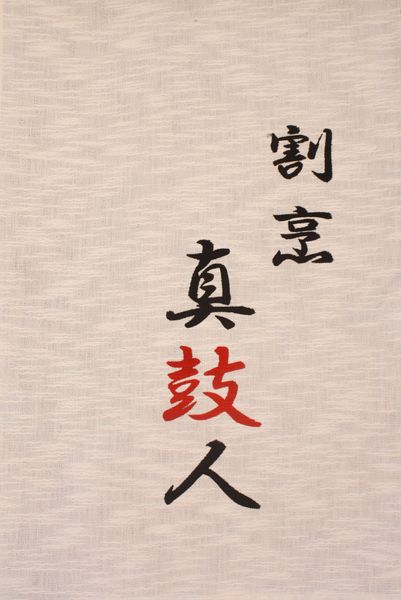 割烹
真鼓人